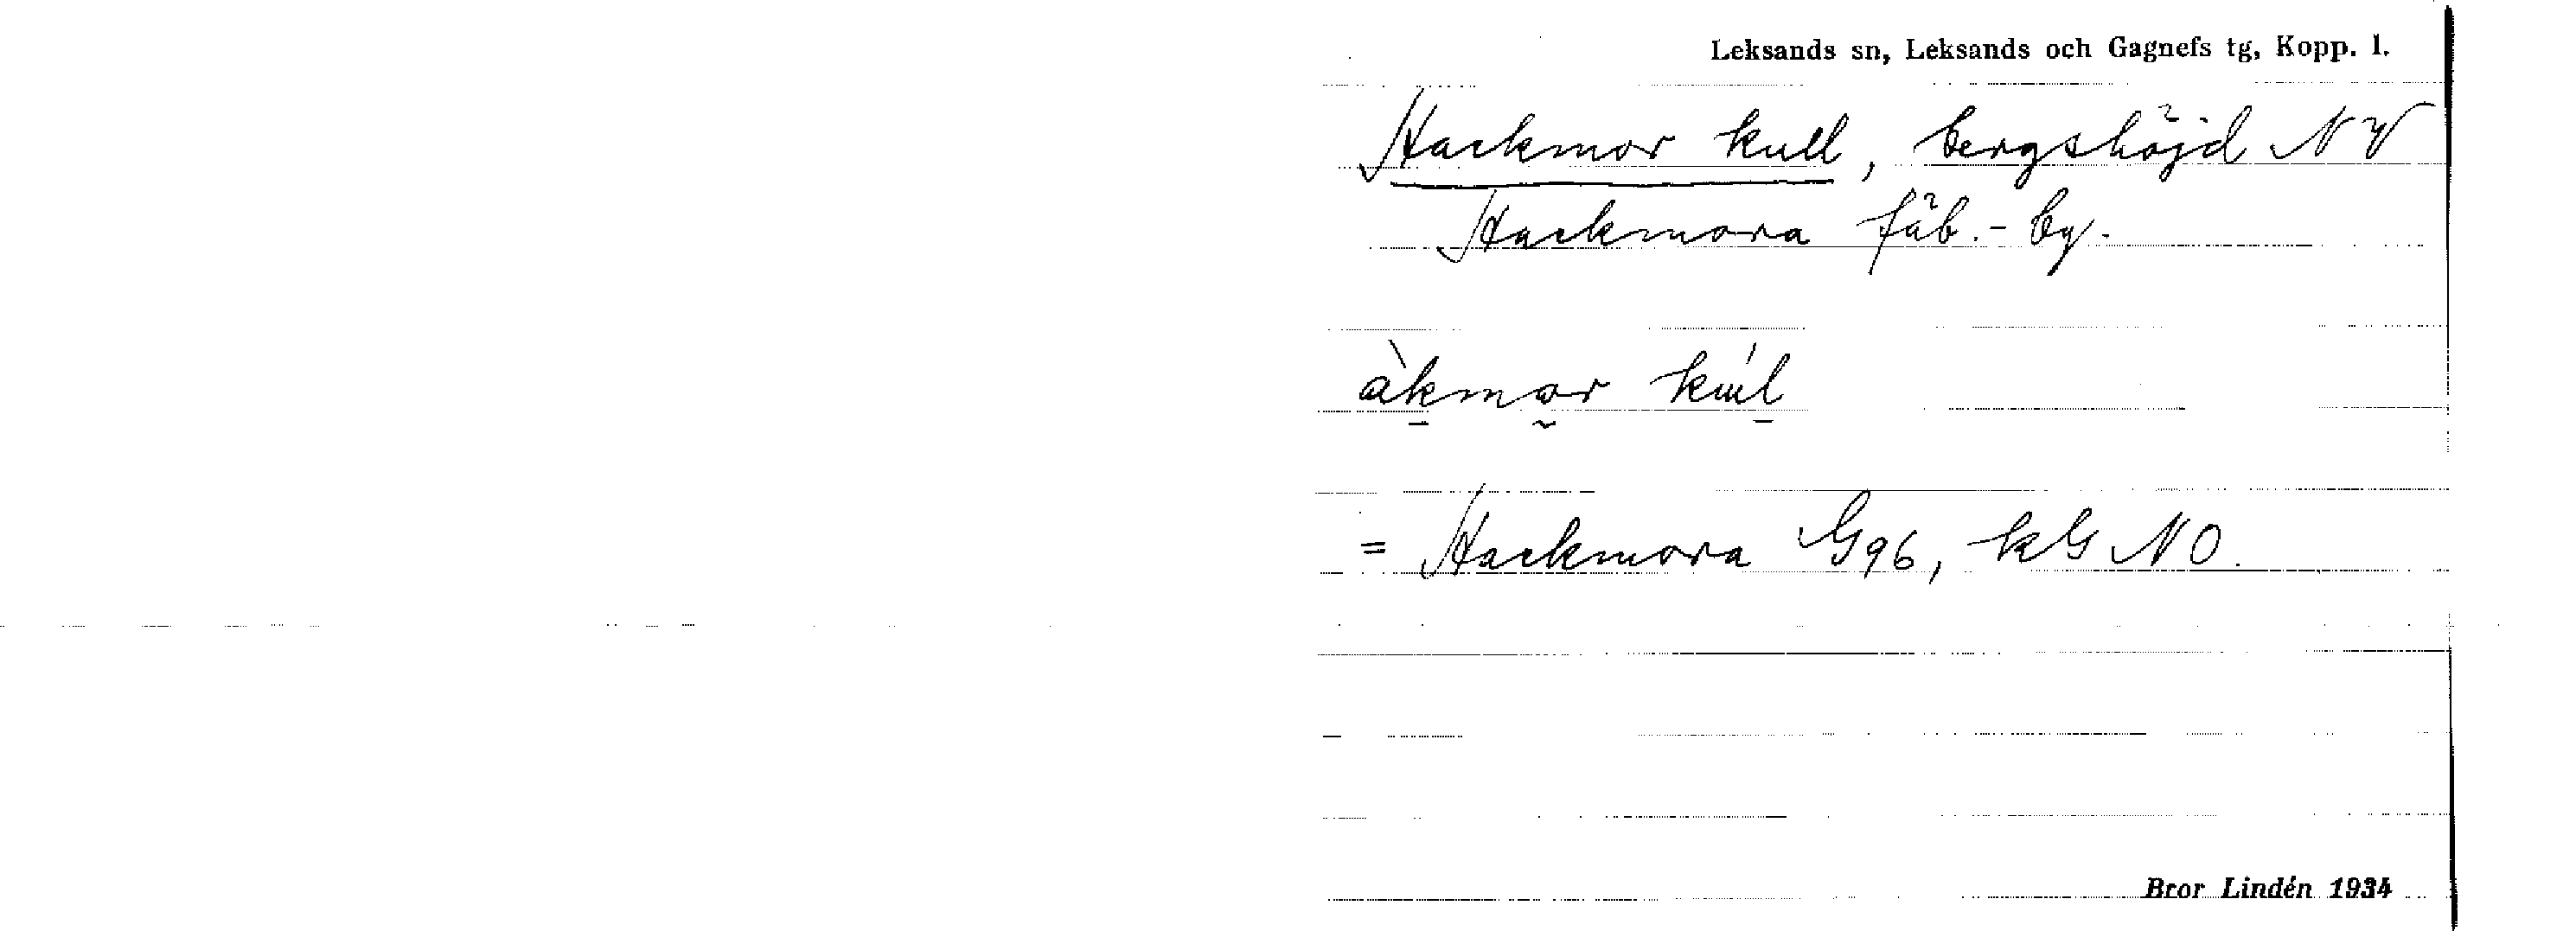 Leksands sn, Leksands och Gagnefs tg, Kopp. l.
Hackmor kull, bergshöjd NV
Hackmora fäb.-by.
àk̠mo̰r kúl̠
= Hackmora G96, kG NO.
Bror Lindén 1934